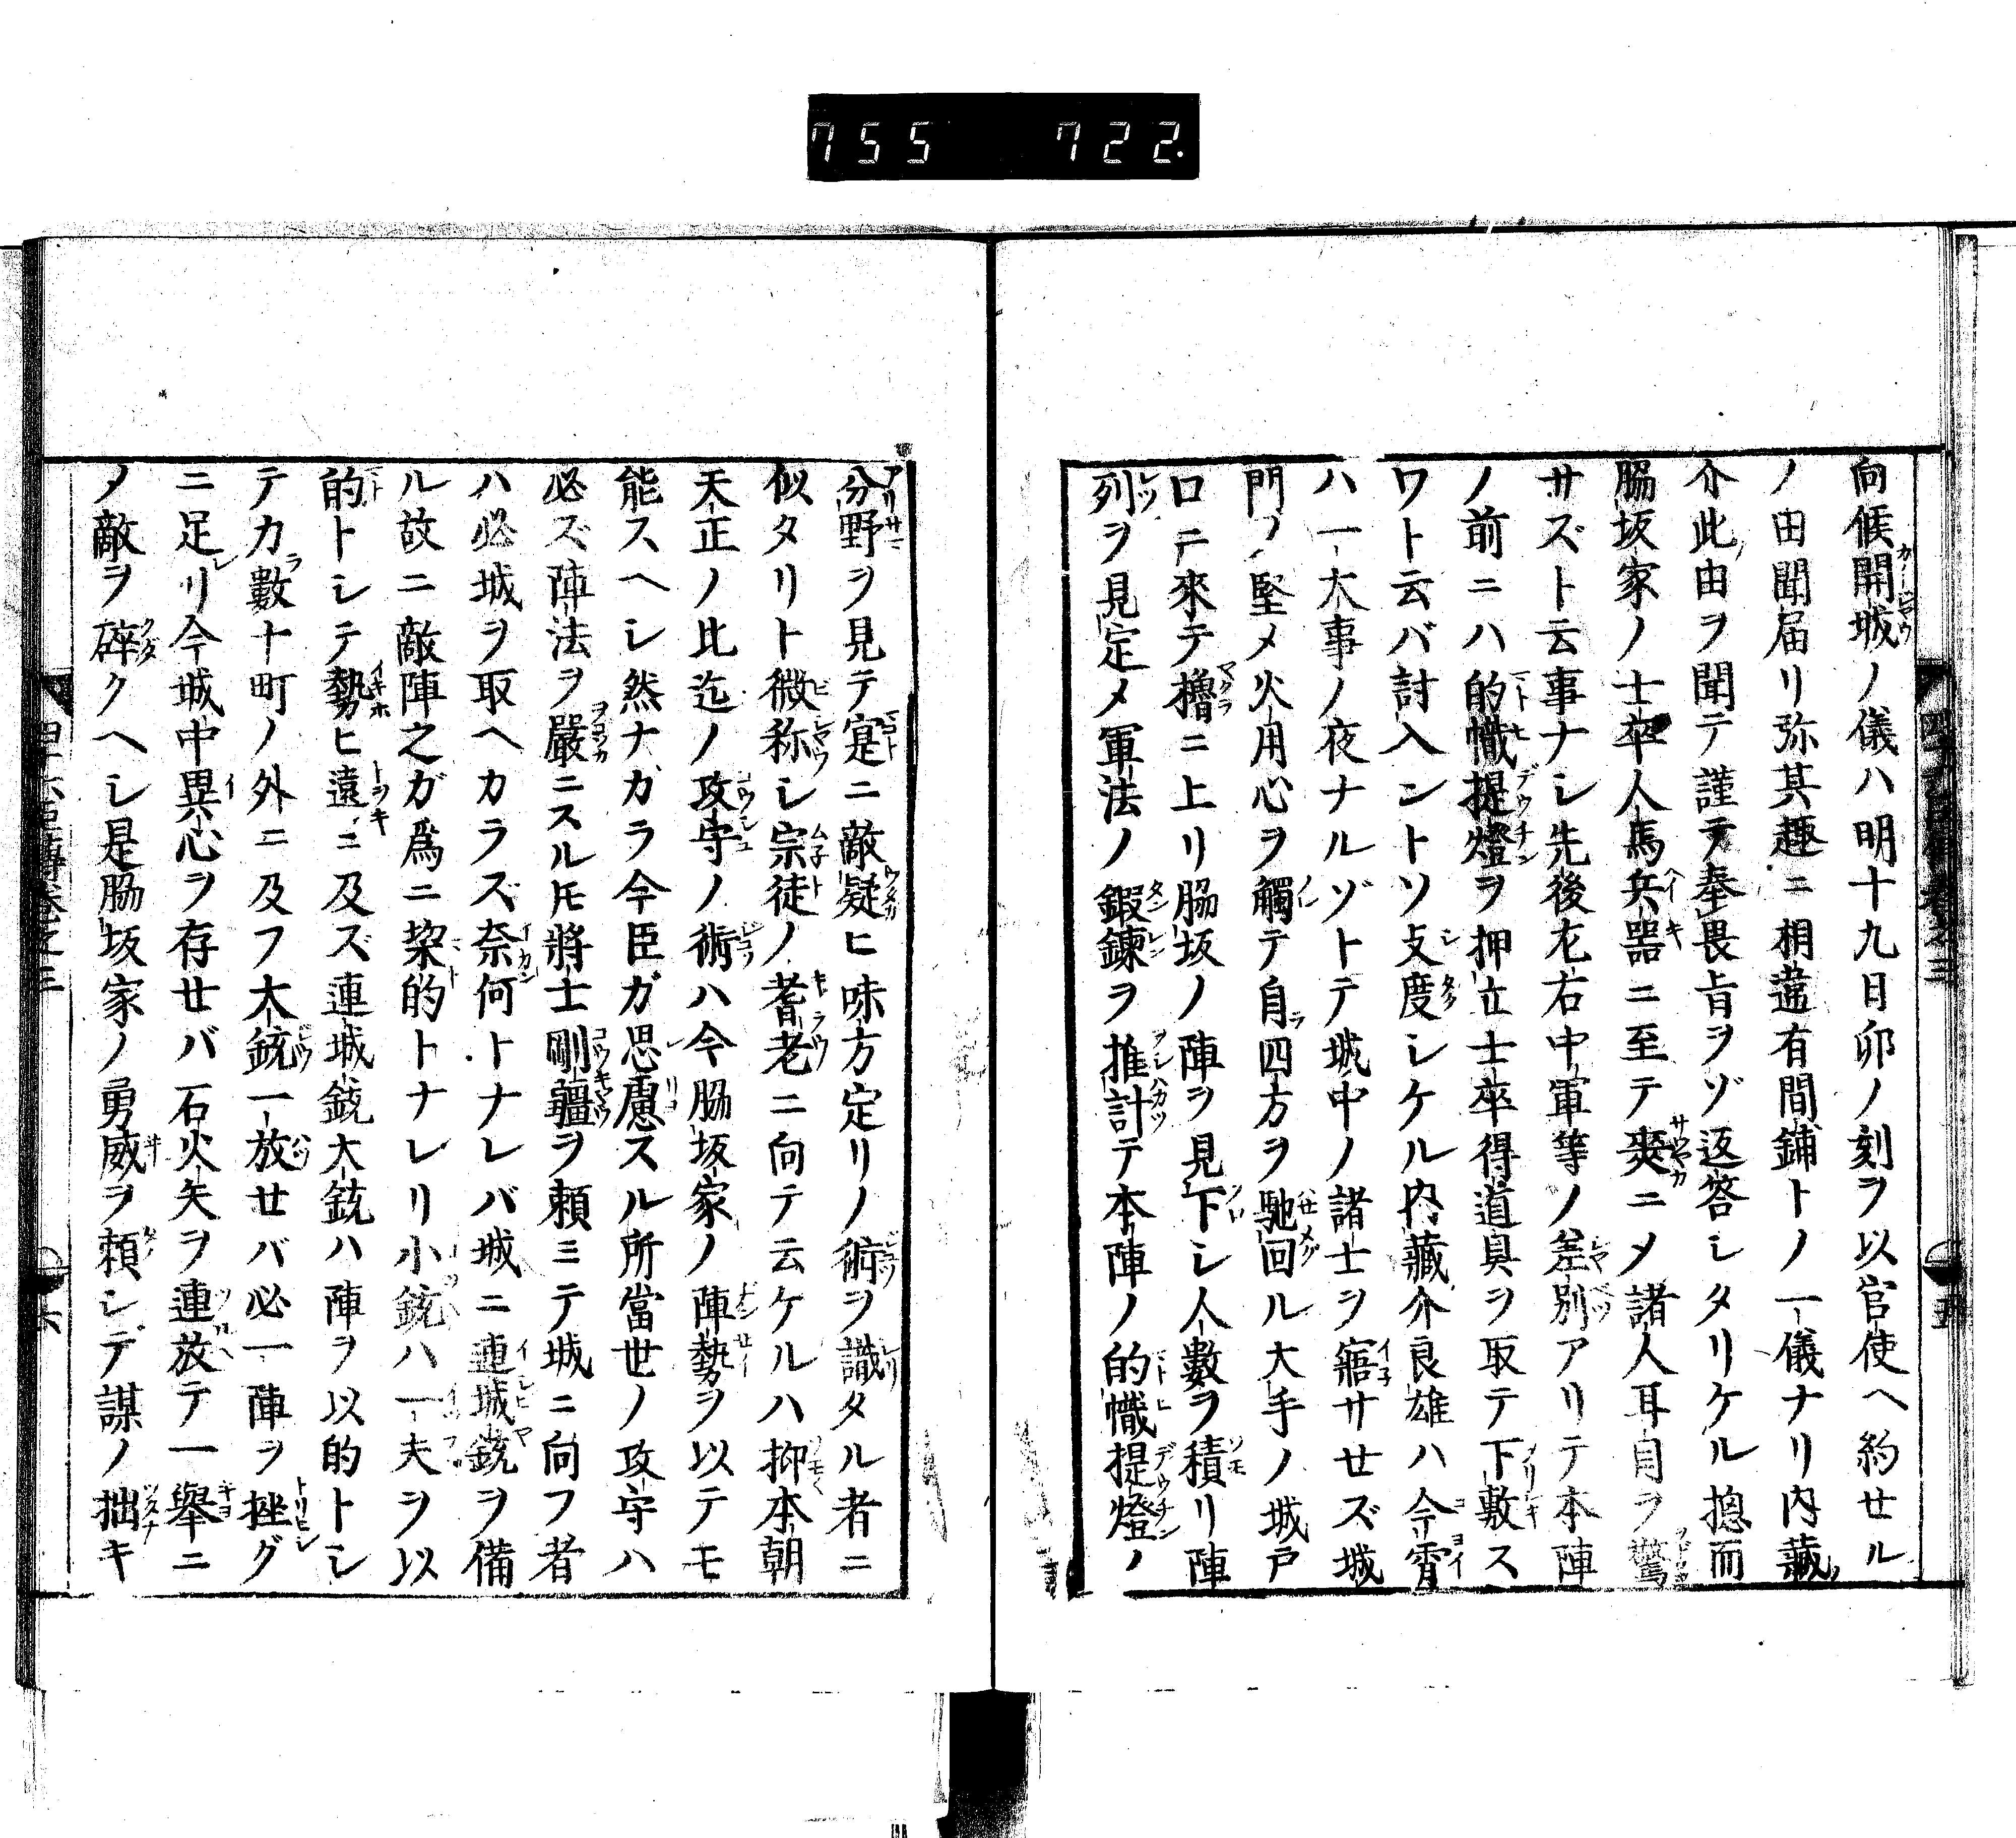 755 722.
向候開城ノ儀ハ明十九日卯ノ刻ヲ以官使ヘ約セル
ノ由聞届リ弥其趣ニ相違有間鋪トノ一儀ナリ内蔵
介此由ヲ聞テ謹テ奉畏旨ヲゾ返答シタリケル摠而
脇坂家ノ士卒人馬兵噐ニ至テ爽ニメ諸人耳目ヲ驚
サズト云事ナシ先後左右中軍等ノ差別アリテ本陣
ノ前ニハ的幟提燈ヲ押立士卒得道具ヲ取テ下敷ス
ワト云バ討入ントソ支度シケル内藏介良雄ハ今宵
ハ一大事ノ夜ナルゾトテ城中ノ諸士ヲ寤サセズ城
門ノ堅メ火用心ヲ觸テ自四方ヲ馳回ル大手ノ城戸
口ニ來テ櫓ニ上リ脇坂ノ陣ヲ見下シ人數ヲ積リ陣
列ヲ見定メ軍法ノ鍜鍊ヲ推計テ本陣ノ的幟提燈ノ
分野ヲ見テ寔ニ敵疑ヒ味方定リノ術ヲ識タル者ニ
似タリト微称シ宗徒ノ耆老ニ向テ云ケルハ抑本朝
天正ノ比迄ノ攻守ノ術ハ今脇坂家ノ陣勢ヲ以テモ
能スヘシ然ナガラ今臣ガ思慮スル所當世ノ攻守ハ
必ズ陣法ヲ嚴ニスルトモ將士剛疆ヲ頼ミテ城ニ向フ者
ハ必城ヲ取ヘカラズ奈何トナレバ城ニ連城銃ヲ備
ル故ニ敵陣之ガ爲ニ梥的トナレリ小銃ハ一夫ヲ以
的トシテ勢ヒ遠ニ及ズ連城銃大銃ハ陣ヲ以的トシ
テカ數十町ノ外ニ及フ大銃一放セバ必一陣ヲ挫グ
ニ足リ今城中異心ヲ存セバ石火矢ヲ連放テ一舉ニ
ノ敵ヲ碎クヘシ是脇坂家ノ勇威ヲ頼シデ謀ノ拙キ